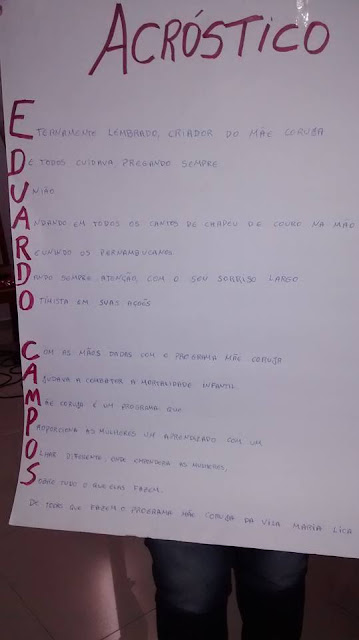 ACRÓSTICO
ETERNAMENTE LEMBRADO, CRIADOR DO MÃE CORUJA
DE TODOS CUIDAVA, PREGANDO SEMPRE
UNIÃO
ANDANDO EM TODOS OS CANTOS DE CHAPEU DE COURO NA MÃO
REUNINDO OS PERNAMBUCANOS
DANDO SEMPRE ATENÇÃO, COM O SEU SORRISO LARGO
OTIMISTA EM SUAS AÇÕES
COM AS MÃOS DADAS COM O PROGRAMA MÃE CORUJA
AJUDAVA A COMBATER A MORTALIDADE INFANTIL.
MÃE CORUJA É UM PROGRAMA QUE
PROPORCIONA AS MULHERES UM APRENDIZADO COM UM
OLHAR DIFERENTE, ONDE EMPODERA AS MULHERES,
SOBRE TUDO O QUE ELAS FAZEM.
DE TODOS QUE FAZEM O PROGRAMA MÃE CORUJA DA VILA MARIA LICA